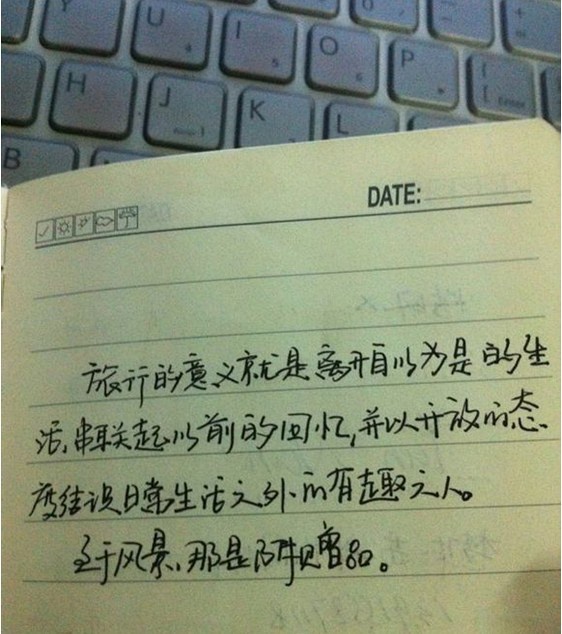 Y U 4 I 5 O 6 P
H J K L
B
DATE:
旅行的意义就是离开自以为是的生
活,串联起以前的回忆,并以开放的态
度结识日常生活之外的有趣之人。
至于风景,那是附赠品。